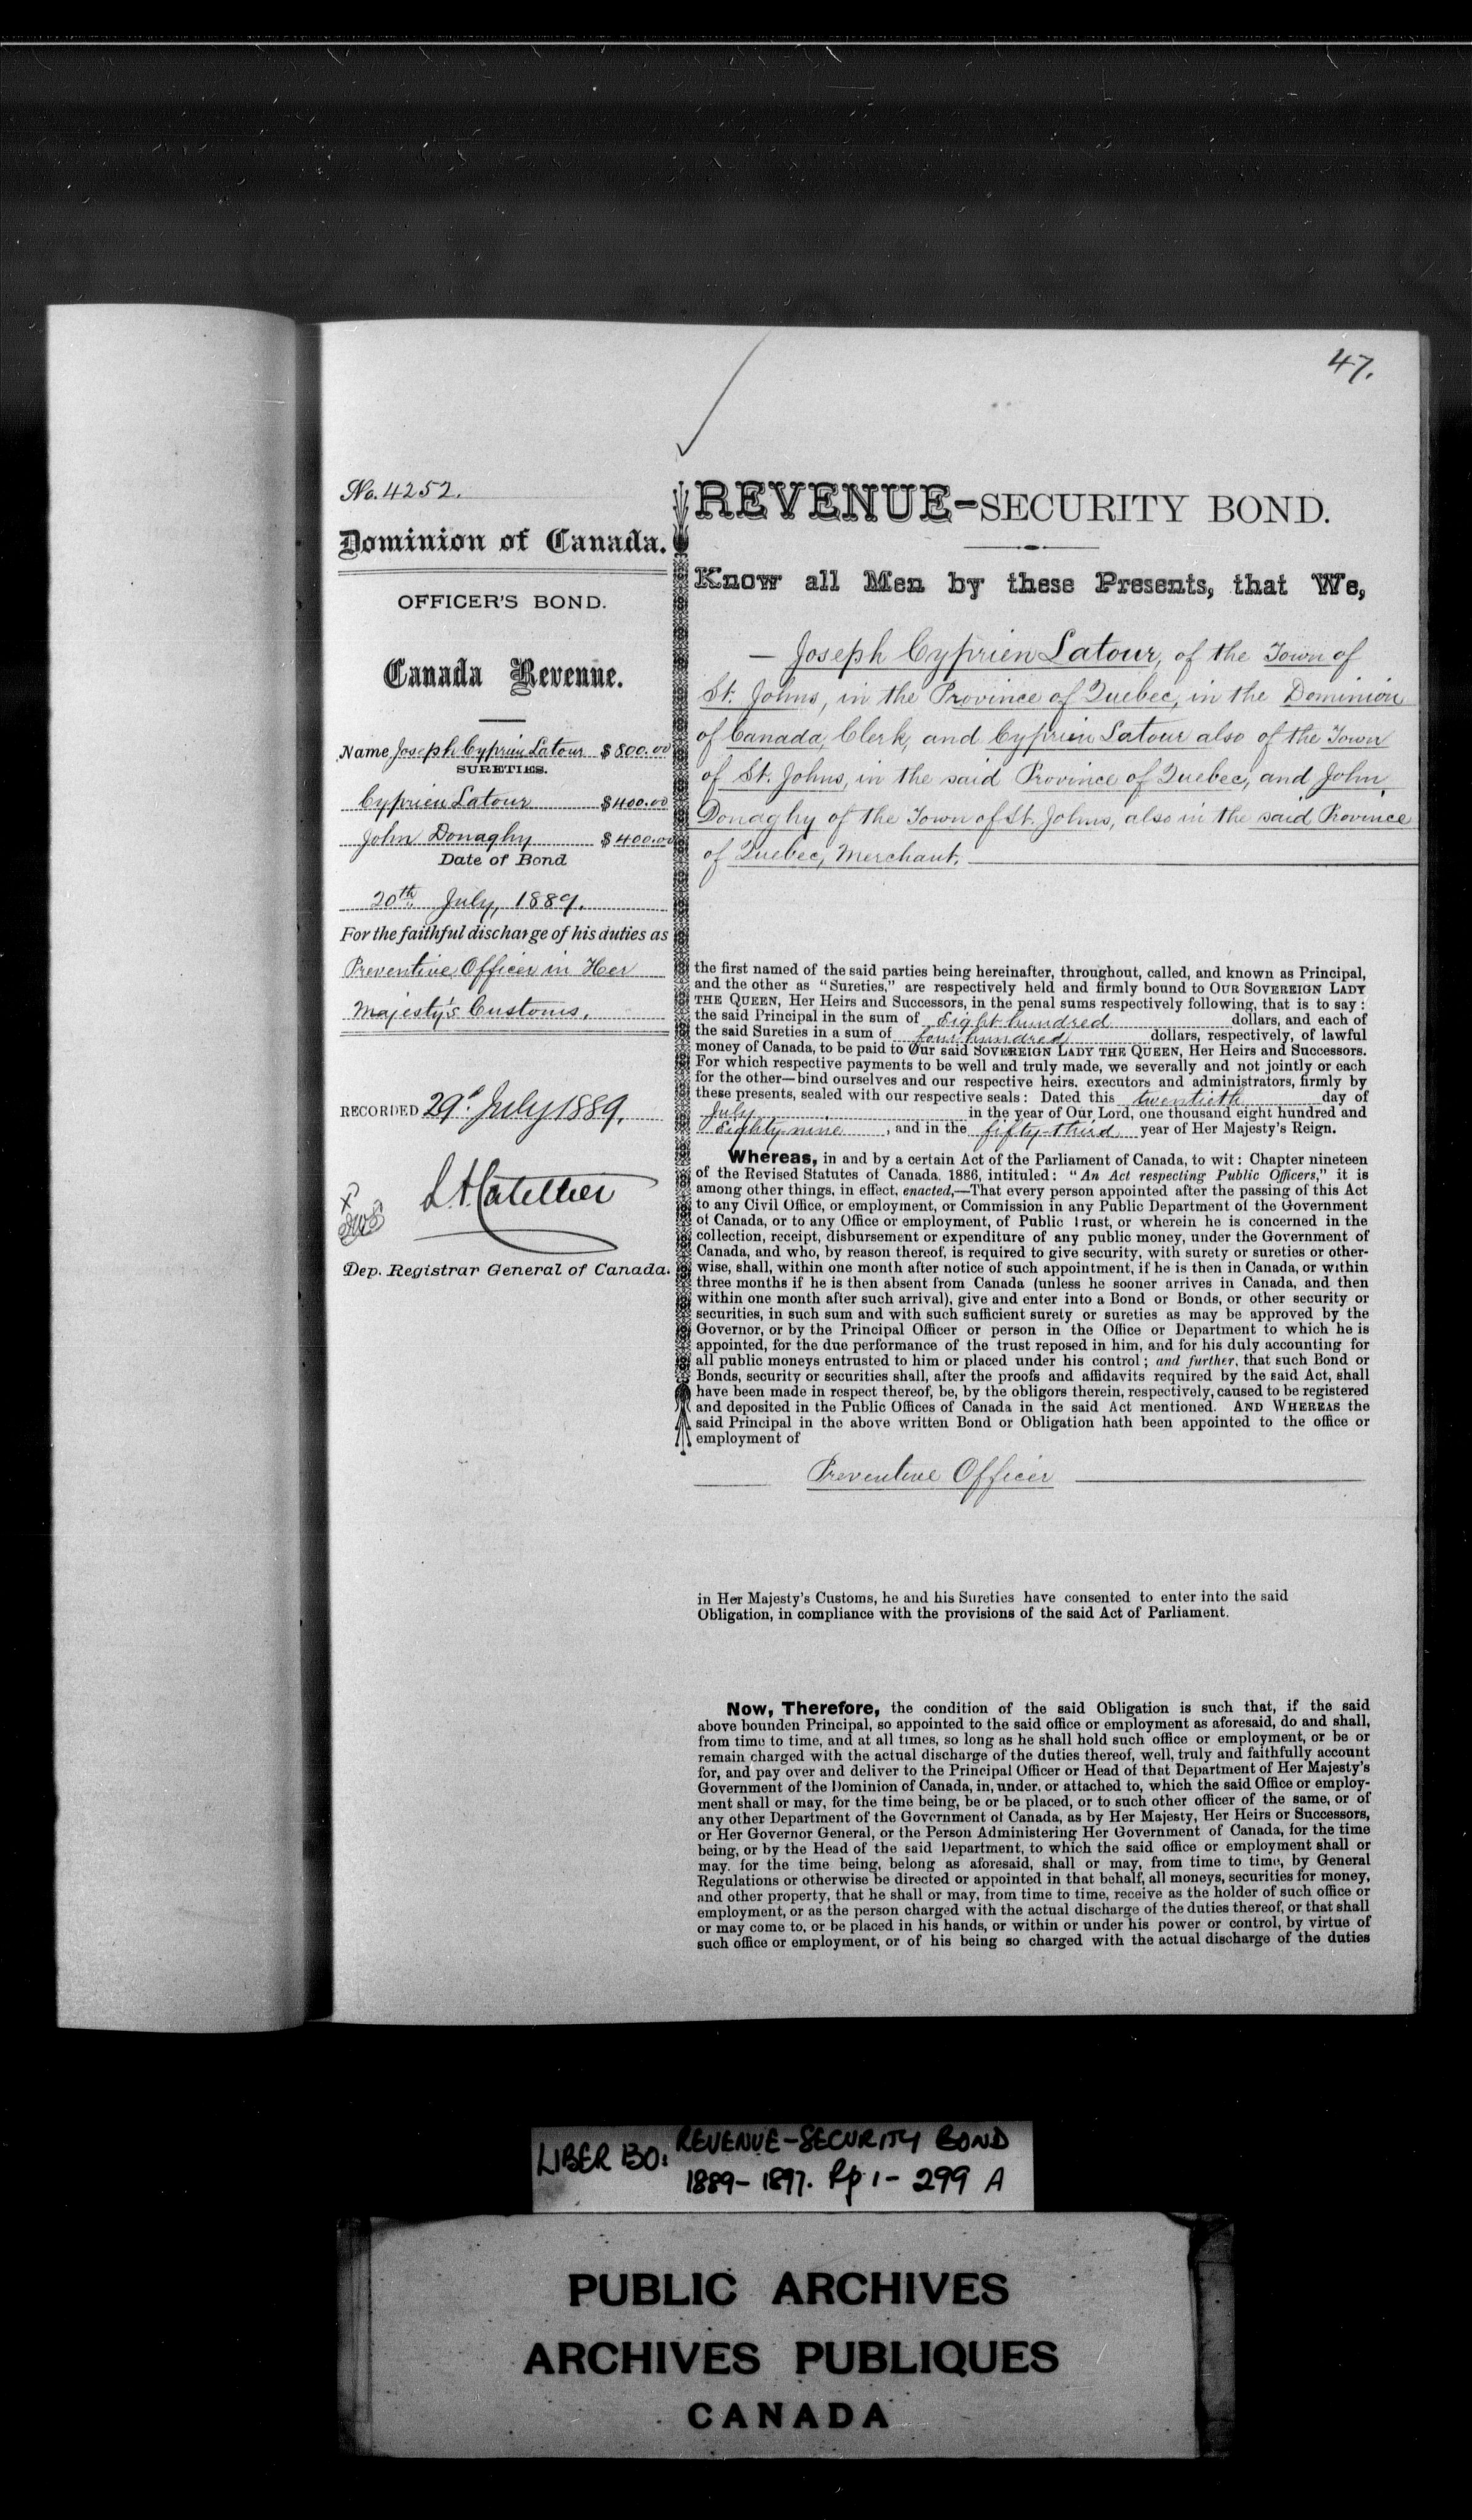 47.
No. 4252.
Dominion of Canada.
OFFICER'S BOND.
Canada Revenue.
Name Joseph Cyprien Latour $800.00
SURETIES.
Cyprien Latour $400.00
John Donaghy $400.00
Date of Bond
20th July, 1889.
For the faithful discharge of his duties as
Preventive Officer in Her
Majesty's Customs.
RECORDED 29d. July 1889.
L.A. Catellier
Dep. Registrar General of Canada.
REVENUE-SECURITY BOND.
Know all Men by these Presents, that We,
— Joseph Cyprien Latour, of the Town of
St. Johns, in the Province of Quebec, in the Dominion
of Canada, Clerk, and Cyprien Latour also of the Town
of St. Johns, in the said Province of Quebec, and John
Donaghy of the Town of St. Johns, also in the said Province
of Quebec, Merchant.
the first named of the said parties being hereinafter, throughout, called, and known as Principal,
and the other as "Sureties," are respectively held and firmly bound to OUR SOVEREIGN LADY
THE QUEEN, Her Heirs and Successors, in the penal sums respectively following, that is to say:
the said Principal in the sum of Eight hundred dollars, and each of
the said Sureties in a sum of four hundred dollars, respectively, of lawful
money of Canada, to be paid to Our said SOVEREIGN LADY THE QUEEN, Her Heirs and Successors.
For which respective payments to be well and truly made, we severally and not jointly or each
for the other—bind ourselves and our respective heirs, executors and administrators, firmly by
these presents, sealed with our respective seals: Dated this twentieth day of
July in the year of Our Lord, one thousand eight hundred and
Eighty nine, and in the fifty-third year of Her Majesty's Reign.
Whereas, in and by a certain Act of the Parliament of Canada, to wit: Chapter nineteen
of the Revised Statutes of Canada, 1886, intituled: "An Act respecting Public Officers," it is
among other things, in effect, enacted,—That every person appointed after the passing of this Act
to any Civil Office, or employment, or Commission in any Public Department of the Government
of Canada, or to any Office or employment, of Public Trust, or wherein he is concerned in the
collection, receipt, disbursement or expenditure of any public money, under the Government of
Canada, and who, by reason thereof, is required to give security, with surety or sureties or other-
wise, shall, within one month after notice of such appointment, if he is then in Canada, or within
three months if he is then absent from Canada (unless he sooner arrives in Canada, and then
within one month after such arrival), give and enter into a Bond or Bonds, or other security or
securities, in such sum and with such sufficient surety or sureties as may be approved by the
Governor, or by the Principal Officer or person in the Office or Department to which he is
appointed, for the due performance of the trust reposed in him, and for his duly accounting for
all public moneys entrusted to him or placed under his control; and further, that such Bond or
Bonds, security or securities shall, after the proofs and affidavits required by the said Act, shall
have been made in respect thereof, be, by the obligors therein, respectively, caused to be registered
and deposited in the Public Offices of Canada in the said Act mentioned. AND WHEREAS the
said Principal in the above written Bond or Obligation hath been appointed to the office or
employment of
Preventive Officer
in Her Majesty's Customs, he and his Sureties have consented to enter into the said
Obligation, in compliance with the provisions of the said Act of Parliament.
Now, Therefore, the condition of the said Obligation is such that, if the said
above bounden Principal, so appointed to the said office or employment as aforesaid, do and shall,
from time to time, and at all times, so long as he shall hold such office or employment, or be or
remain charged with the actual discharge of the duties thereof, well, truly and faithfully account
for, and pay over and deliver to the Principal Officer or Head of that Department of Her Majesty's
Government of the Dominion of Canada, in, under, or attached to, which the said Office or employ-
ment shall or may, for the time being, be or be placed, or to such other officer of the same, or of
any other Department of the Government of Canada, as by Her Majesty, Her Heirs or Successors,
or Her Governor General, or the Person Administering Her Government of Canada, for the time
being, or by the Head of the said Department, to which the said office or employment shall or
may, for the time being, belong as aforesaid, shall or may, from time to time, by General
Regulations or otherwise be directed or appointed in that behalf, all moneys, securities for money,
and other property, that he shall or may, from time to time, receive as the holder of such office or
employment, or as the person charged with the actual discharge of the duties thereof, or that shall
or may come to, or be placed in his hands, or within or under his power or control, by virtue of
such office or employment, or of his being so charged with the actual discharge of the duties
LIBER 130: REVENUE-SECURITY BOND
1889-1897. Pp. 1-299 A
PUBLIC ARCHIVES
ARCHIVES PUBLIQUES
CANADA